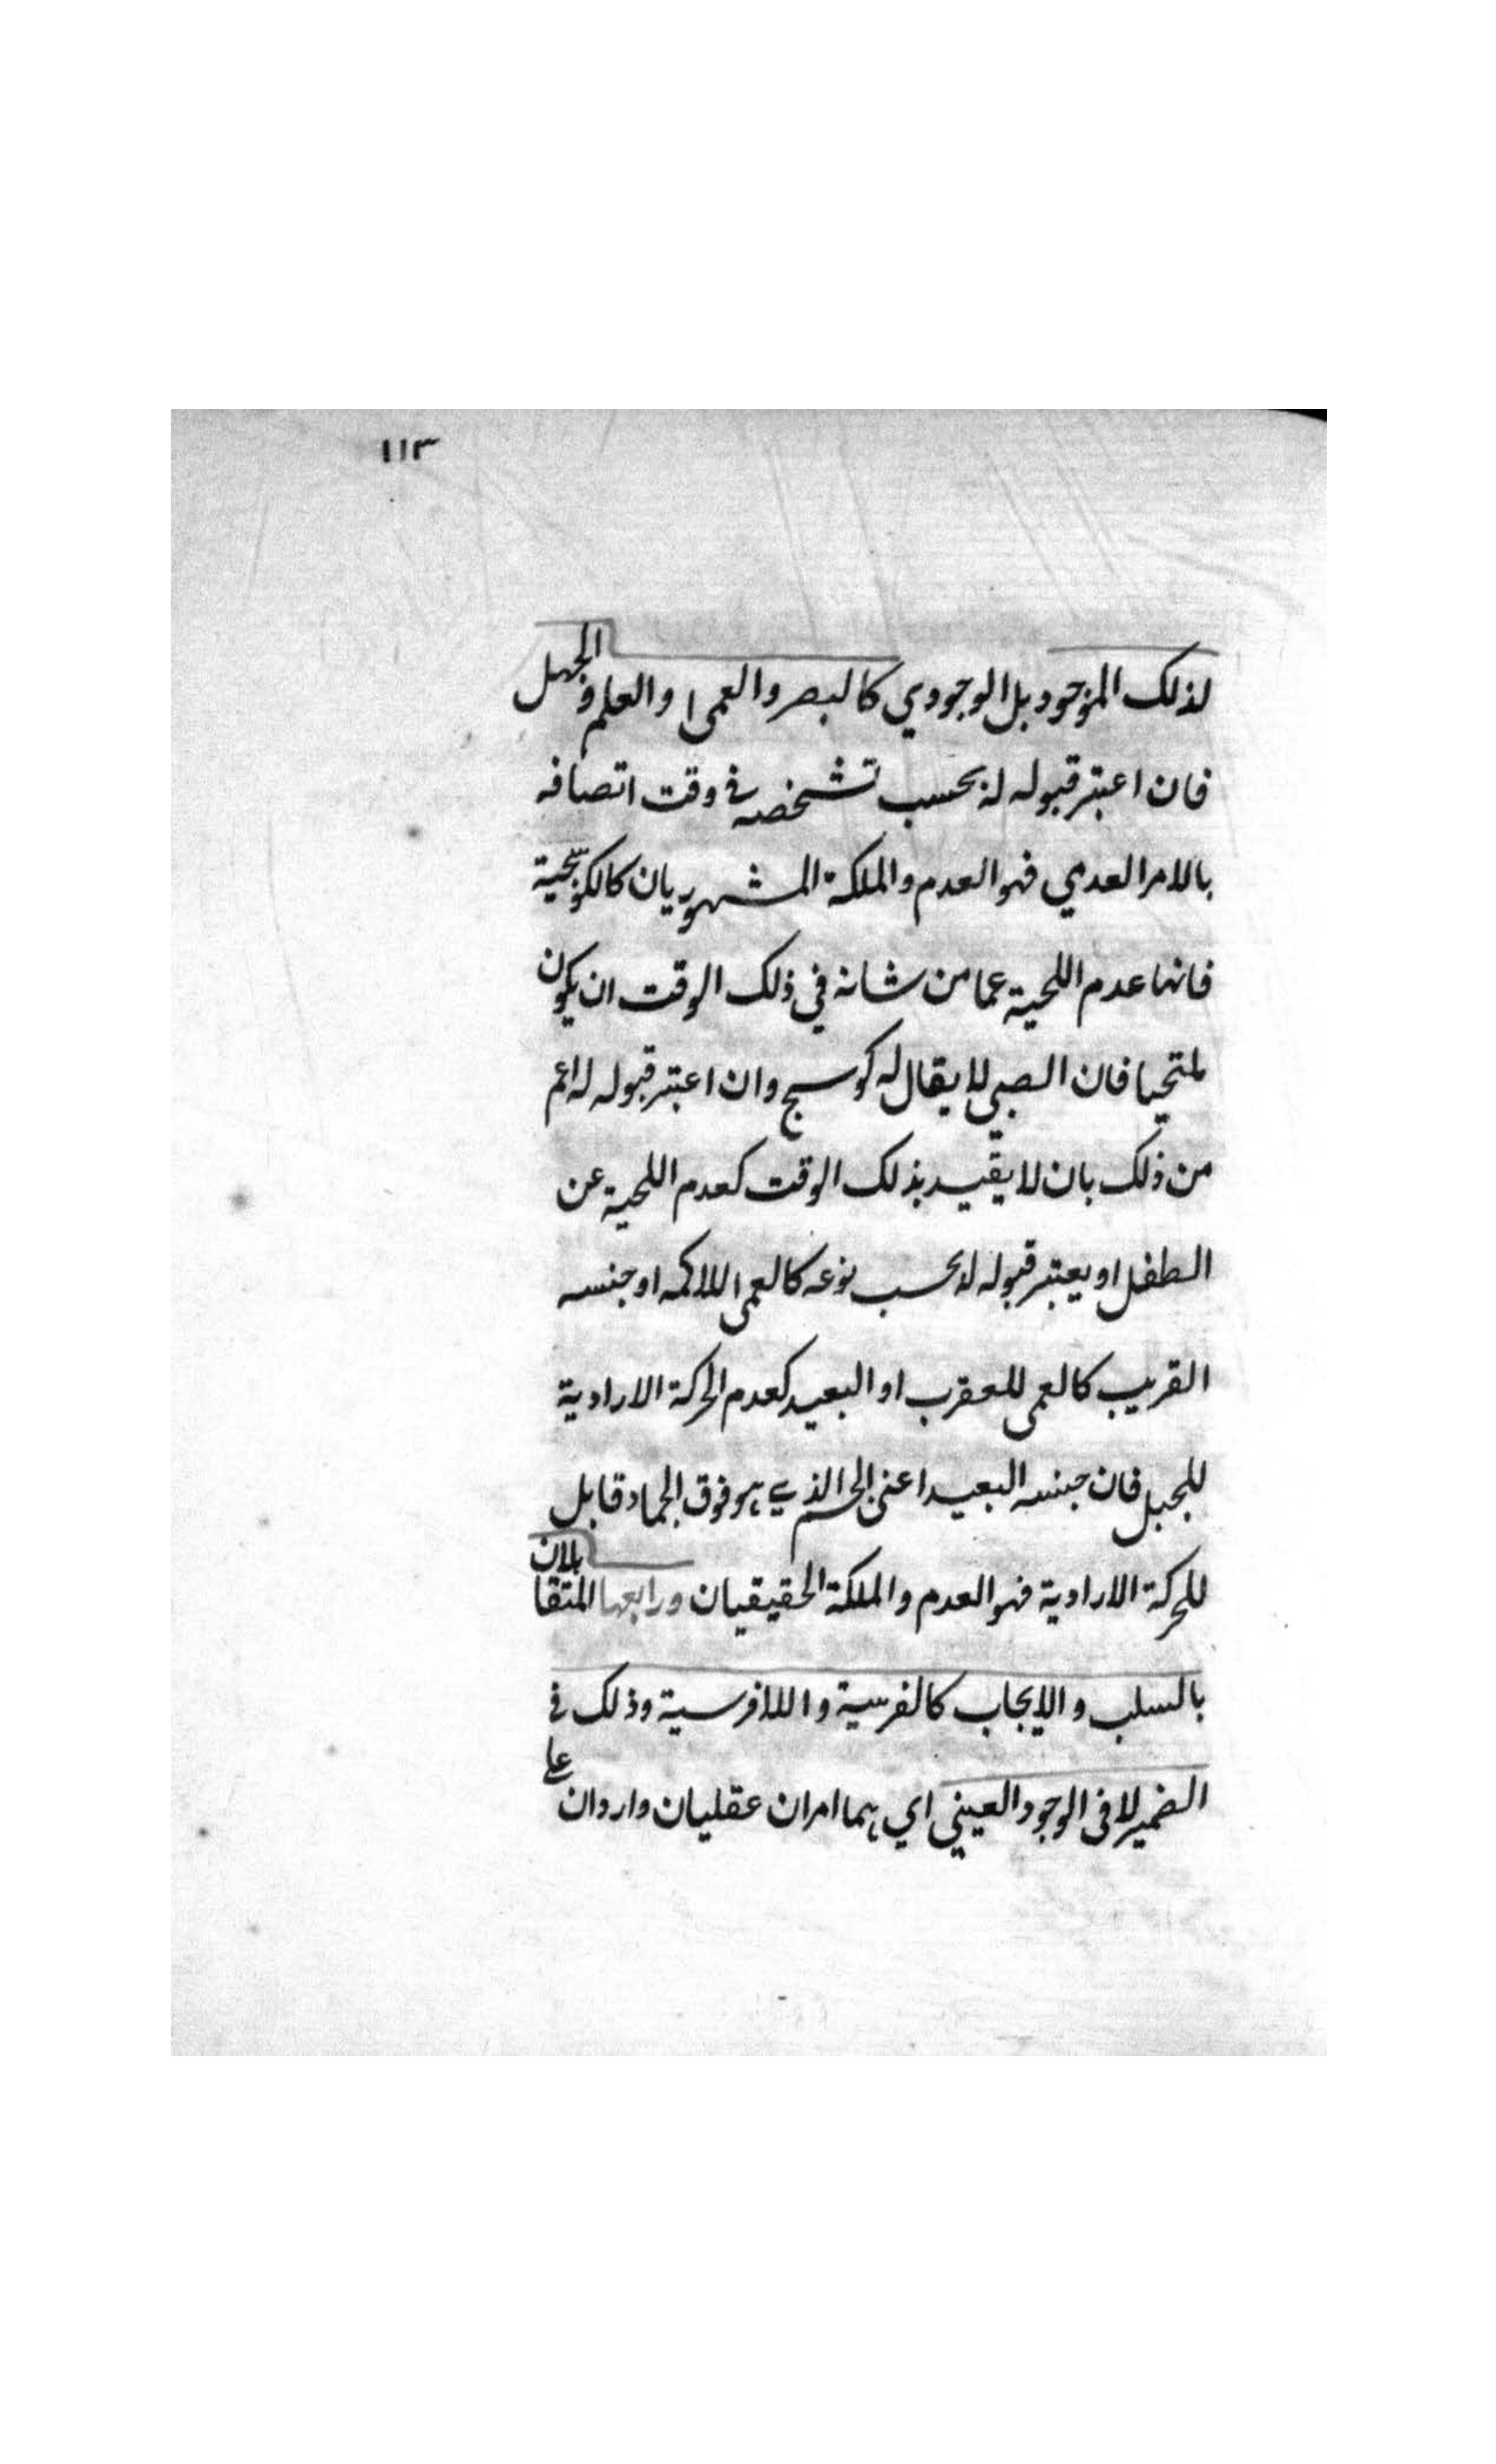 ١١٣
لذلك الموجود بل الوجودي كالبصر والعمى والعلم والجهل
فان اعتبر قبوله له بحسب تشخصه في وقت اتصافه
بالامر العدمي فهو العدم والملكة المشهوريان كالكوسجية
فانها عدم اللحية عما من شانه في ذلك الوقت ان يكون
ملتحيا فان الصبي لا يقال له كوسج وان اعتبر قبوله له اعم
من ذلك بان لا يقيد بذلك الوقت كعدم اللحية عن
الطفل او يعتبر قبوله له بحسب نوعه كالعمى للاكمه او جنسه
القريب كالعمى للعقرب او البعيد كعدم الحركة الارادية
للجبل فان جنسه البعيد اعني الجسم الذي هو فوق الجماد قابل
للحركة الارادية فهو العدم والملكة الحقيقيان ورابعها المتقابلان
بالسلب والايجاب كالفرسية واللافرسية وذلك في
الضمير لا في الوجود العيني اي هما امران عقليان واردان على